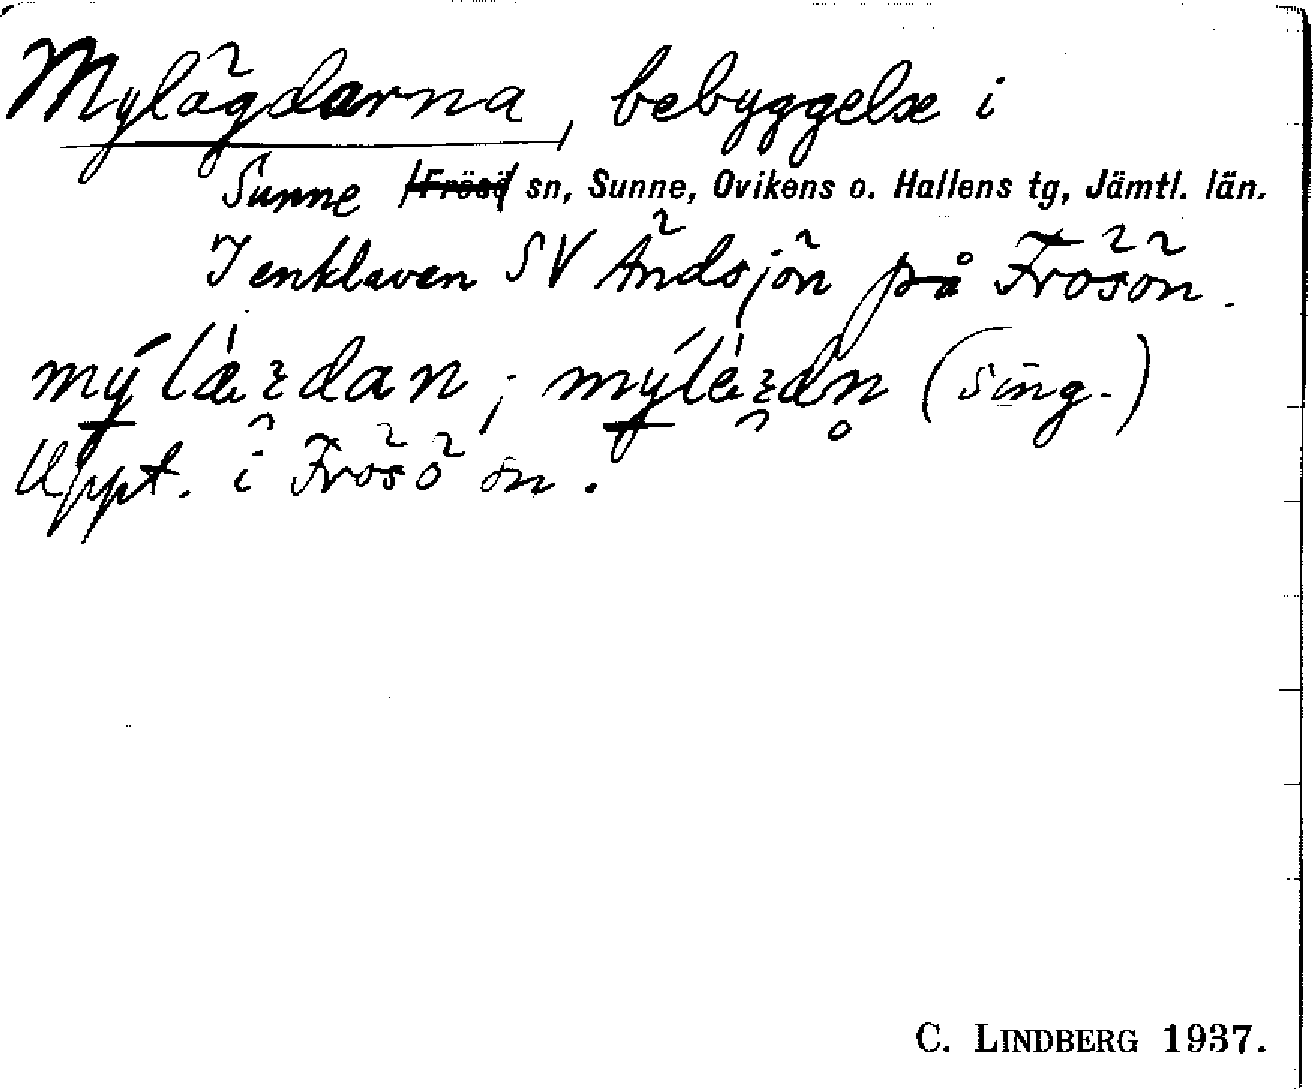 Mylägdarna, bebyggelse i
Sunne Frösö sn, Sunne, Ovikens o. Hallens tg, Jämtl. län.
I enklaven SV Ändsjön på Frösön.
(sing.)
Uppt. i Frösö sn.
C. LINDBERG 1937.